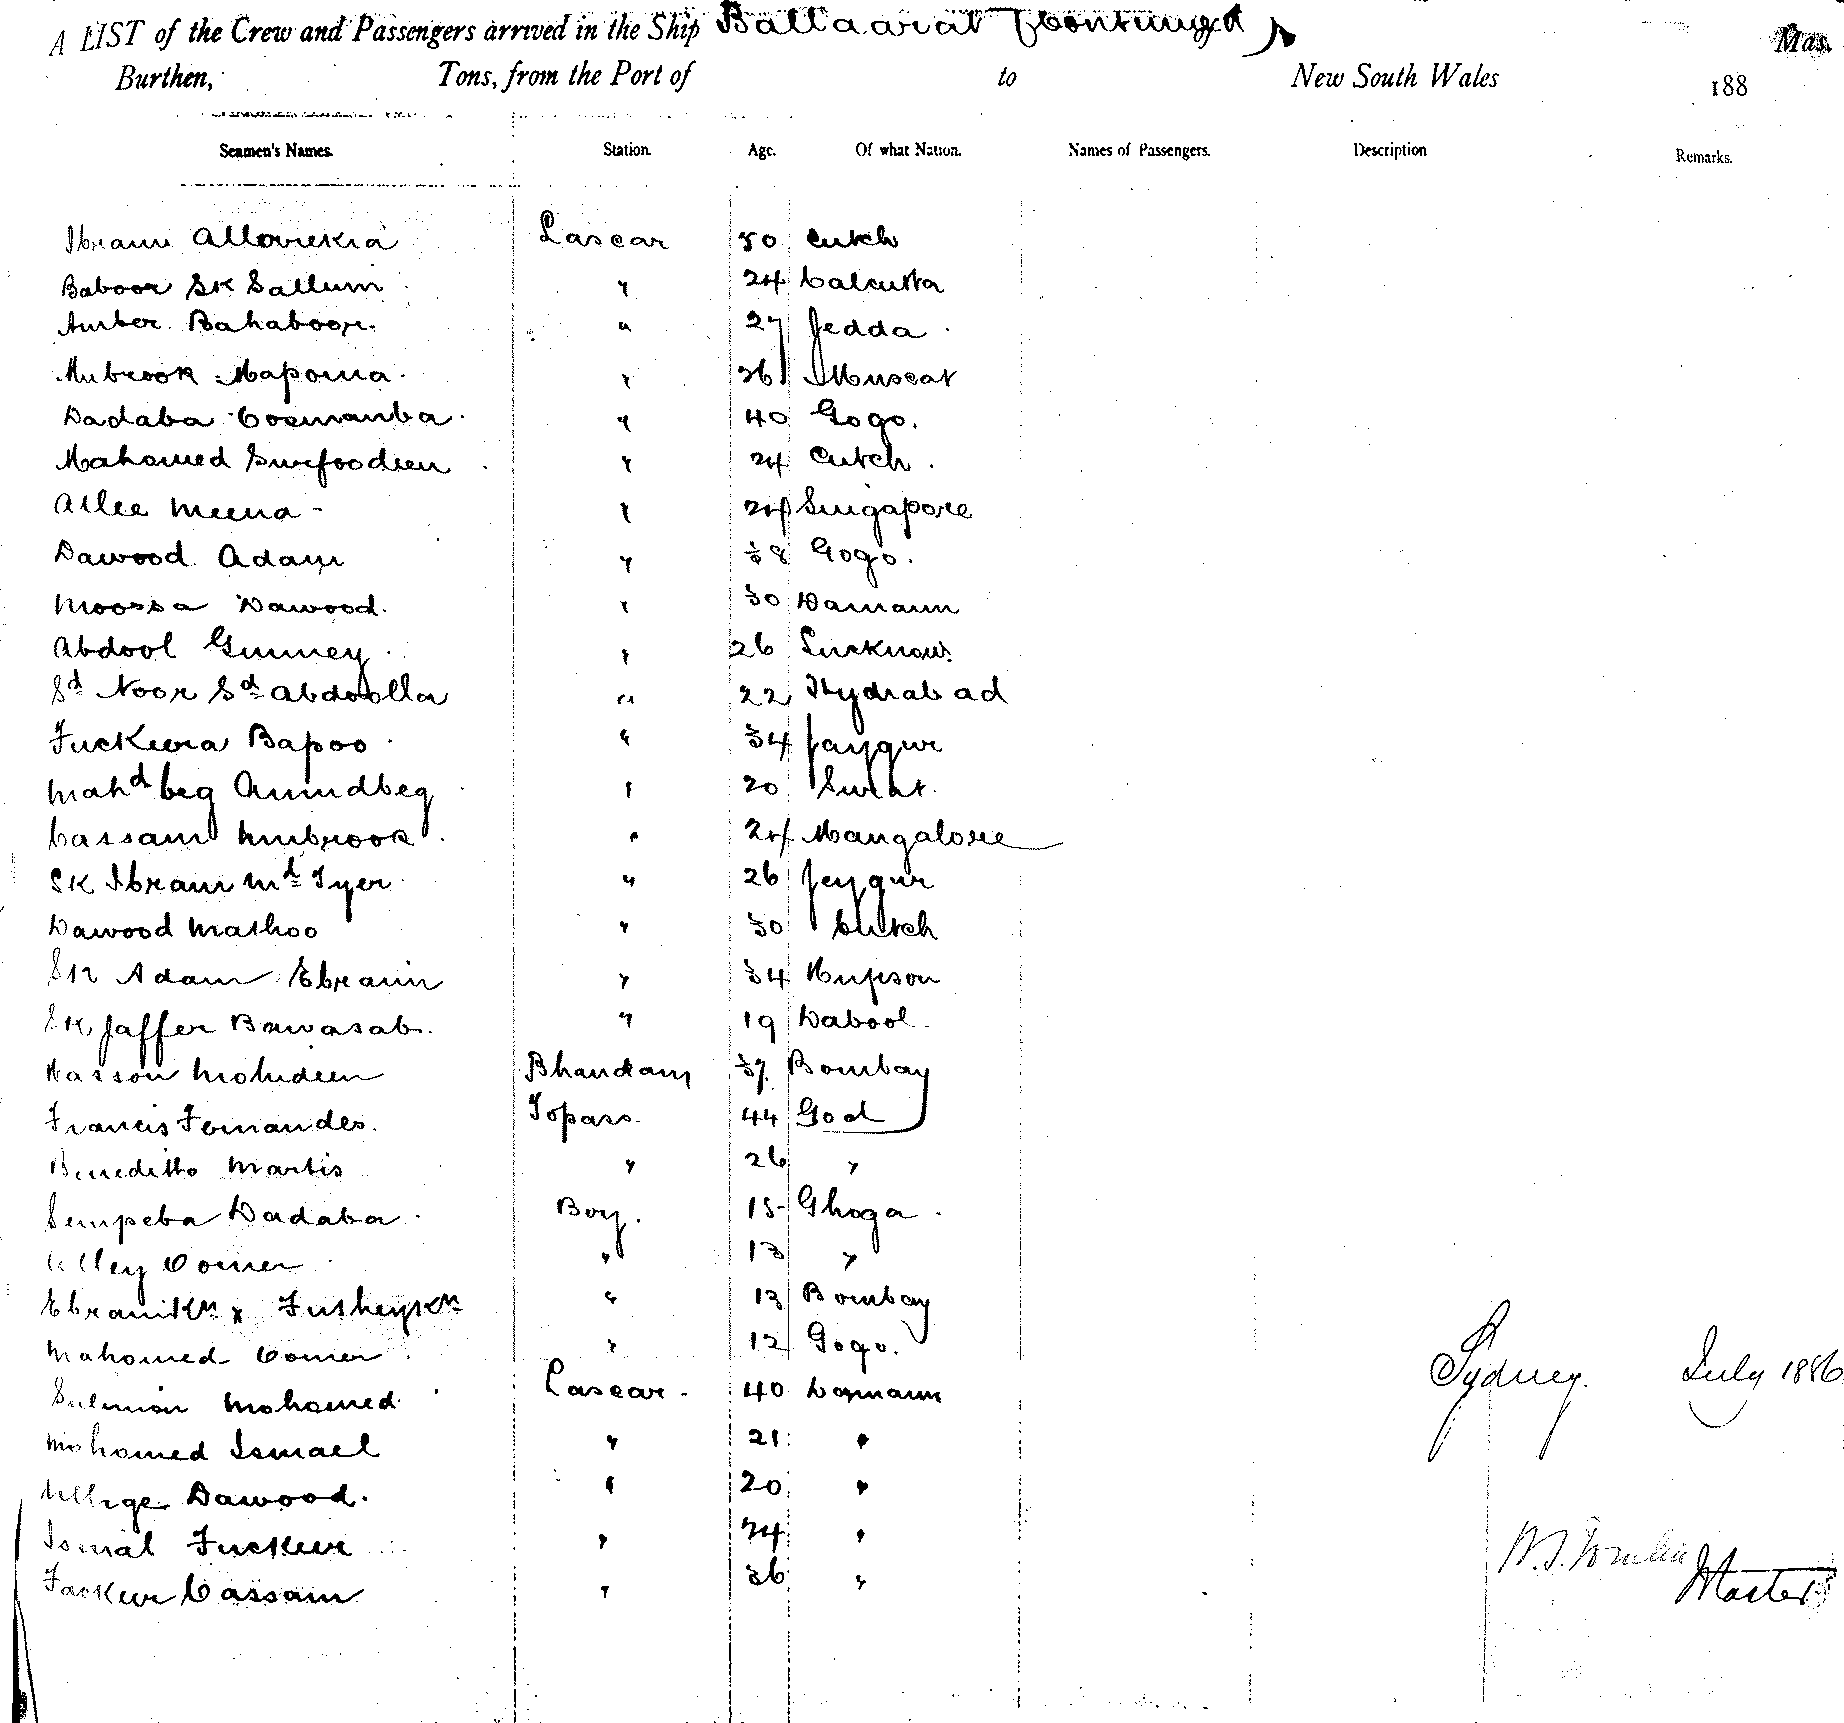 A LIST of the Crew and Passengers arrived in the Ship Ballaarat (Continued) Mas.
Burthen, Tons, from the Port of to New South Wales 188
Seamen's Names. Station. Age. Of what Nation. Names of Passengers. Description Remarks.
Ibraim Lascar 50 Cutch
Baboor Sk Sallum " 24 Calcutta
Amber Bahaboor. " 27 Jedda
Mubrook Mapoma " 26 Muscat
Dadaba Cosmanba " 40 Gogo.
Mahomed Surfoodeen " 24 Cutch.
Allee Meena - " 24 Singapore
Dawood Adam " 38 Gogo.
Moossa Dawood. " 30 Damaun
Abdool Gunney " 26 Lucknow.
Sd Noor Sd Abdoolla " 22 Hydrabad
Fuckera Bapoo " 34 Jaygur
Mahd beg Amindbeg " 20 Surat.
Cassam Mubrook " 24 Mangalore
SK Ibram Md Tyer " 26 Jeygur
Dawood Mathoo " 30 Cutch
SK Adam Ebraim " 34
SK Jaffer Bawasab. " 19 Dabool
Hasson Mohideen Bhandary 37 Bombay
Francis Fernandes. Topass 44 Goa
Beneditto Martis " 26 "
Sempeba Dadaba Boy. 15 Ghoga
Alley Oomer " 13 "
" 13 Bombay
Mahomed Oomer " 12 Gogo.
Suliman Mohomed Lascar 40 Damaun
Sydney. July 1886
Mohomed Ismael " 21 "
Dawood. " 20 "
Ismal Fuckeer " 24 "
Fackeer Cassam " 36 "
Master